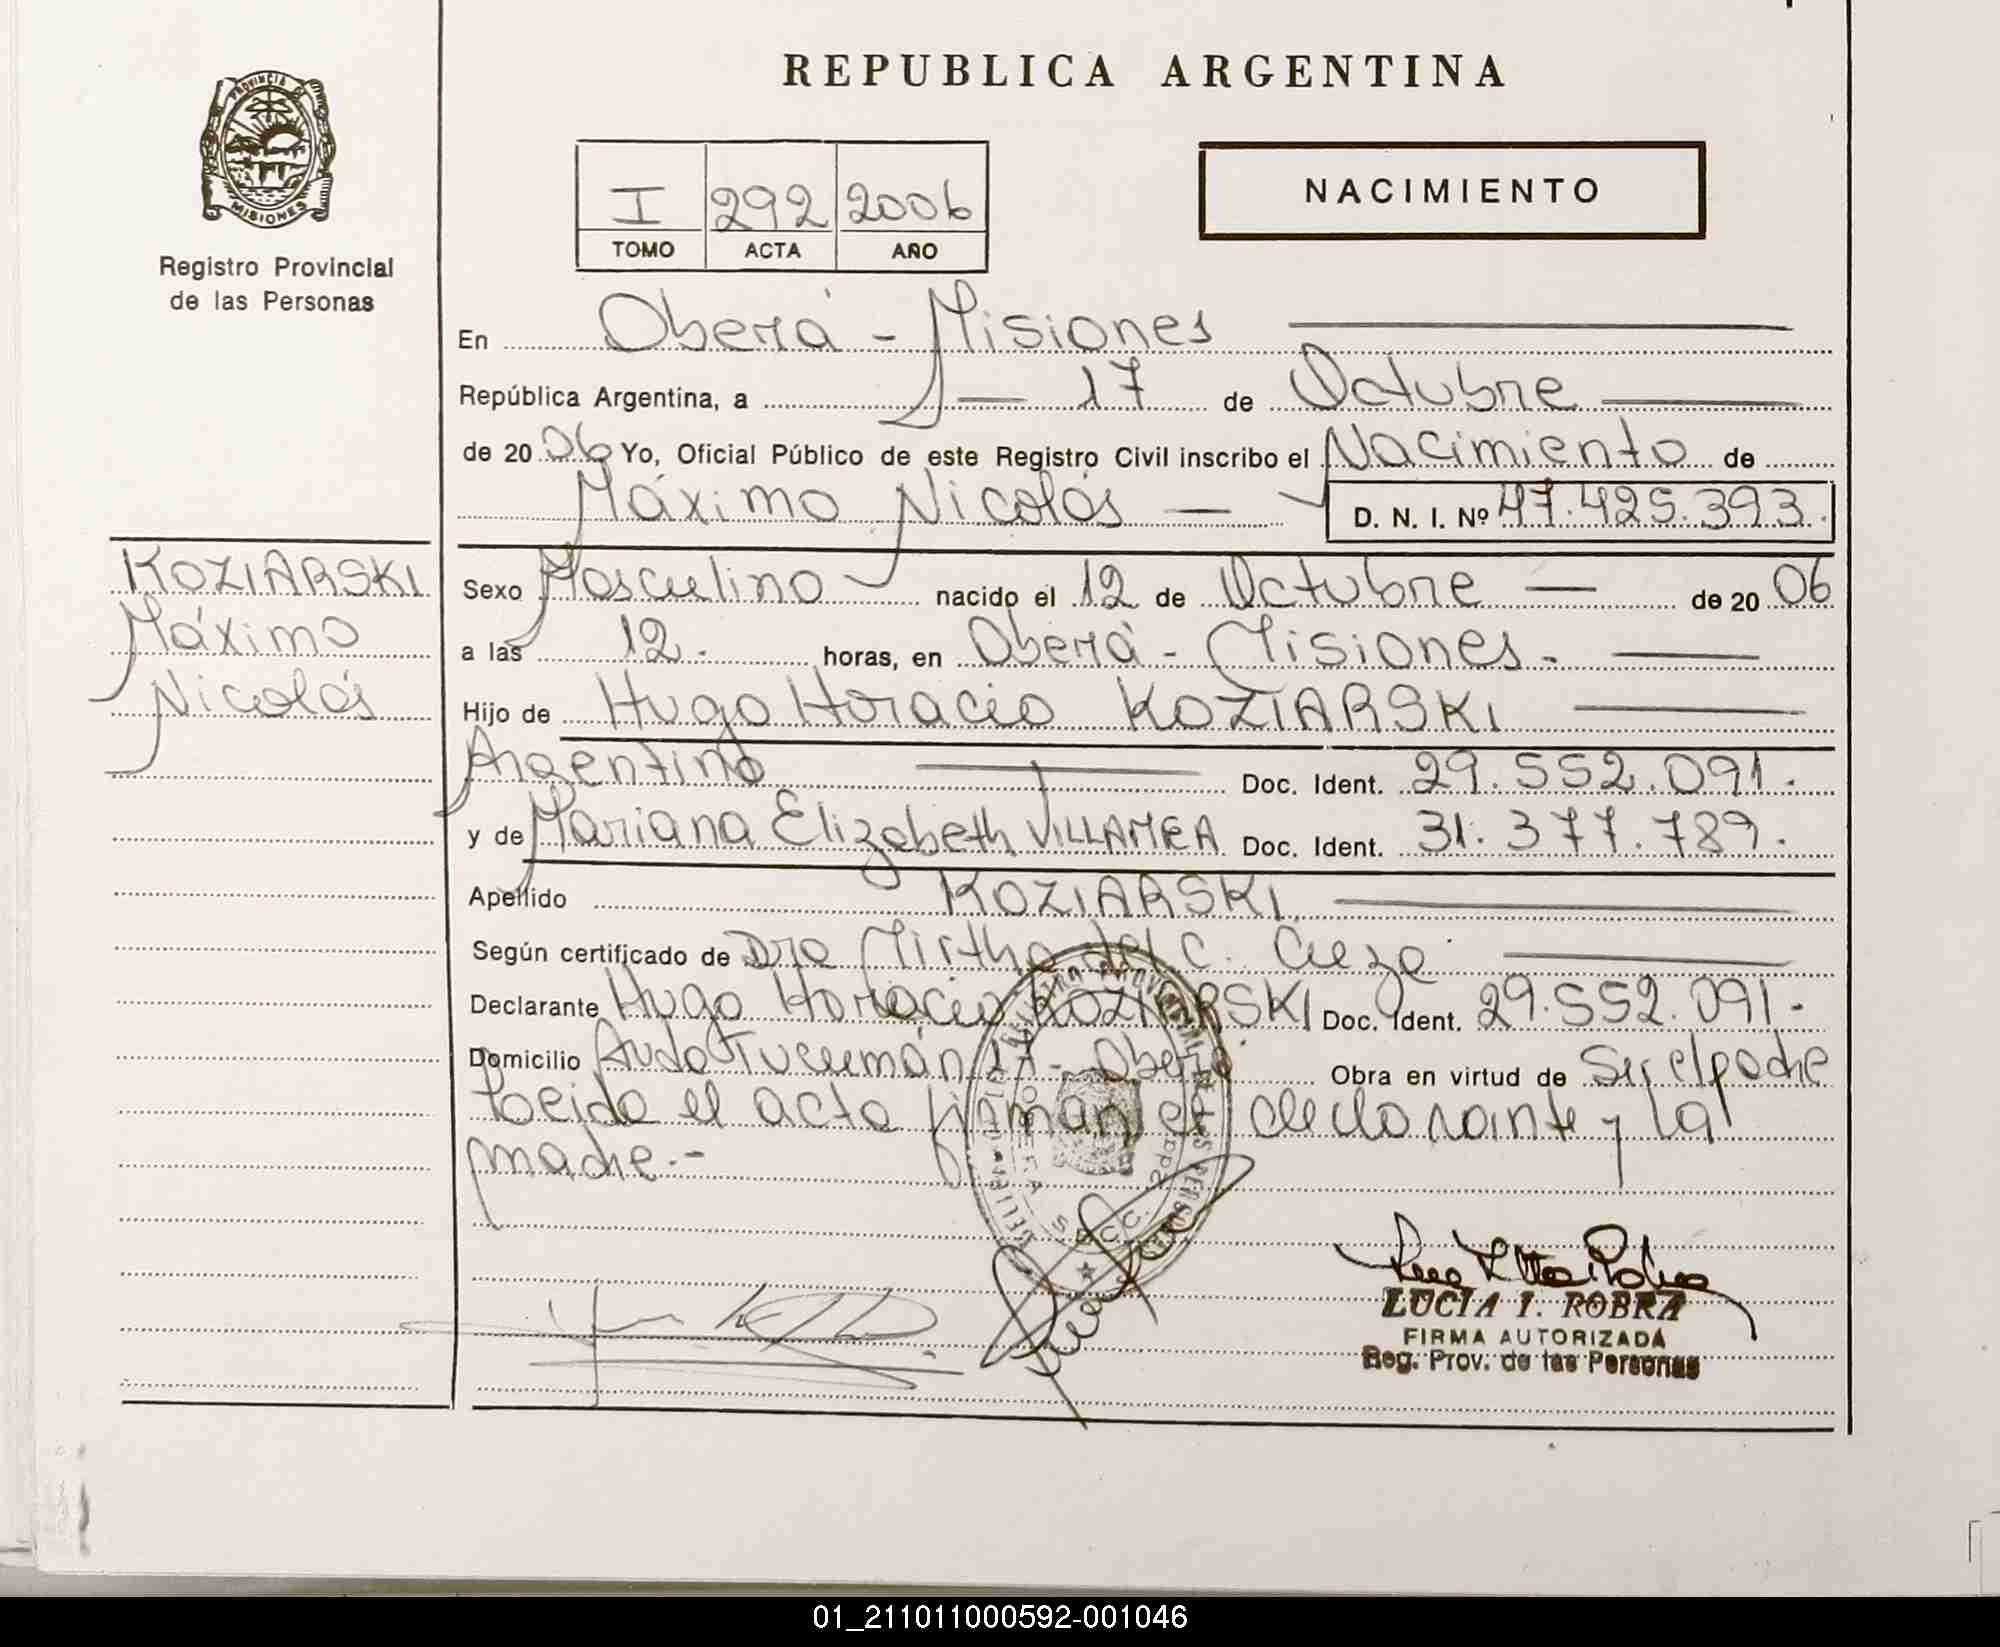 REPUBLICA ARGENTINA
PROVINCIA DE
MISIONES
Registro Provincial
de las Personas
I 292 2006
TOMO ACTA AÑO
NACIMIENTO
En Oberá - Misiones
República Argentina, a 17 de Octubre
de 20 06 Yo, Oficial Público de este Registro Civil inscribo el Nacimiento de
Máximo Nicolás — D. N. I. Nº 47.425.393.
KOZIARSKI
Máximo
Nicolás
Sexo Masculino nacido el 12 de Octubre — de 20 06
a las 12. horas, en Oberá - Misiones.
Hijo de Hugo Horacio KOZIARSKI
Argentino Doc. Ident. 29.552.091.
y de Mariana Elizabeth VILLAMEA Doc. Ident. 31.377.789.
Apellido KOZIARSKI
Según certificado de Dra Mirtha del C. Cieza
Declarante Hugo Horacio KOZIARSKI Doc. Ident. 29.552.091.-
Domicilio Avda Tucumán - Oberá Obra en virtud de Ser el padre
Leida el acta firman el declarante y la
madre.-
LUCIA I. ROBRA
FIRMA AUTORIZADA
Reg. Prov. de las Personas
01_211011000592-001046